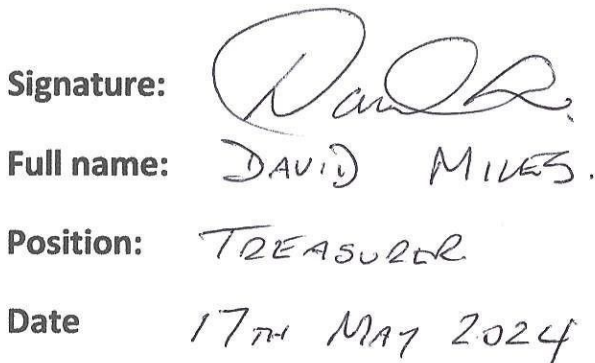 Signature:
Full name: DAVID MILES.
Position: TREASURER
Date 17TH MAY 2024